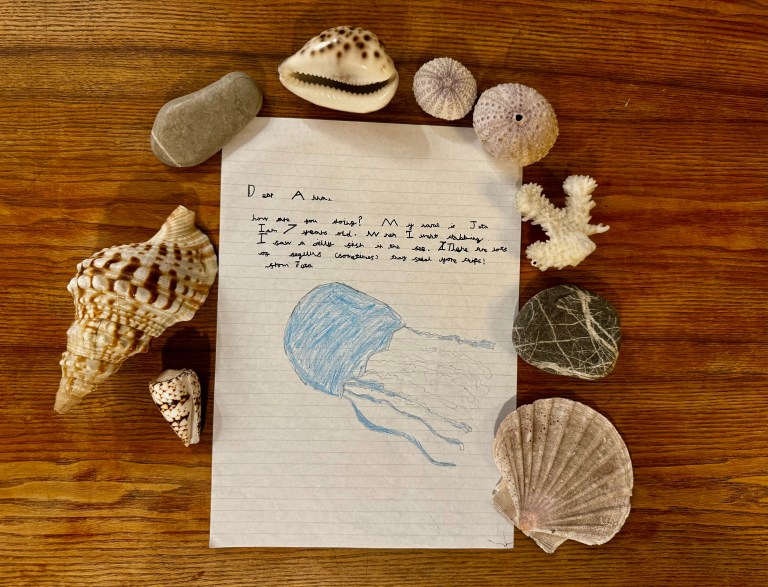 Dear A
how are you doing? My name is Jata
I am 7 years old. When I went crabbing
I saw a Jelly fish in the sea. There are lots
of segulls (sometimes) they steal your chips!
from Jata